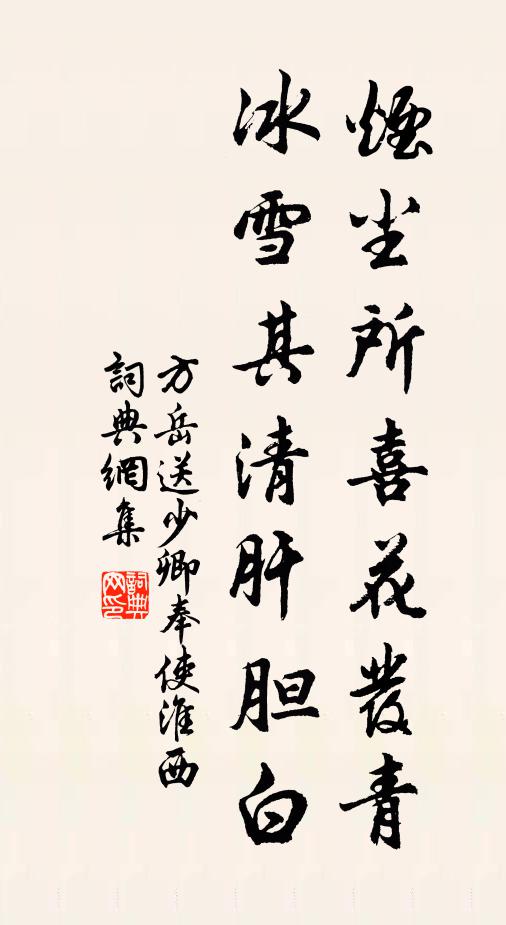 煙尘所喜花發青
冰雪其清肝胆白
方岳送少卿奉使淮西
詞典網集
詞典網印